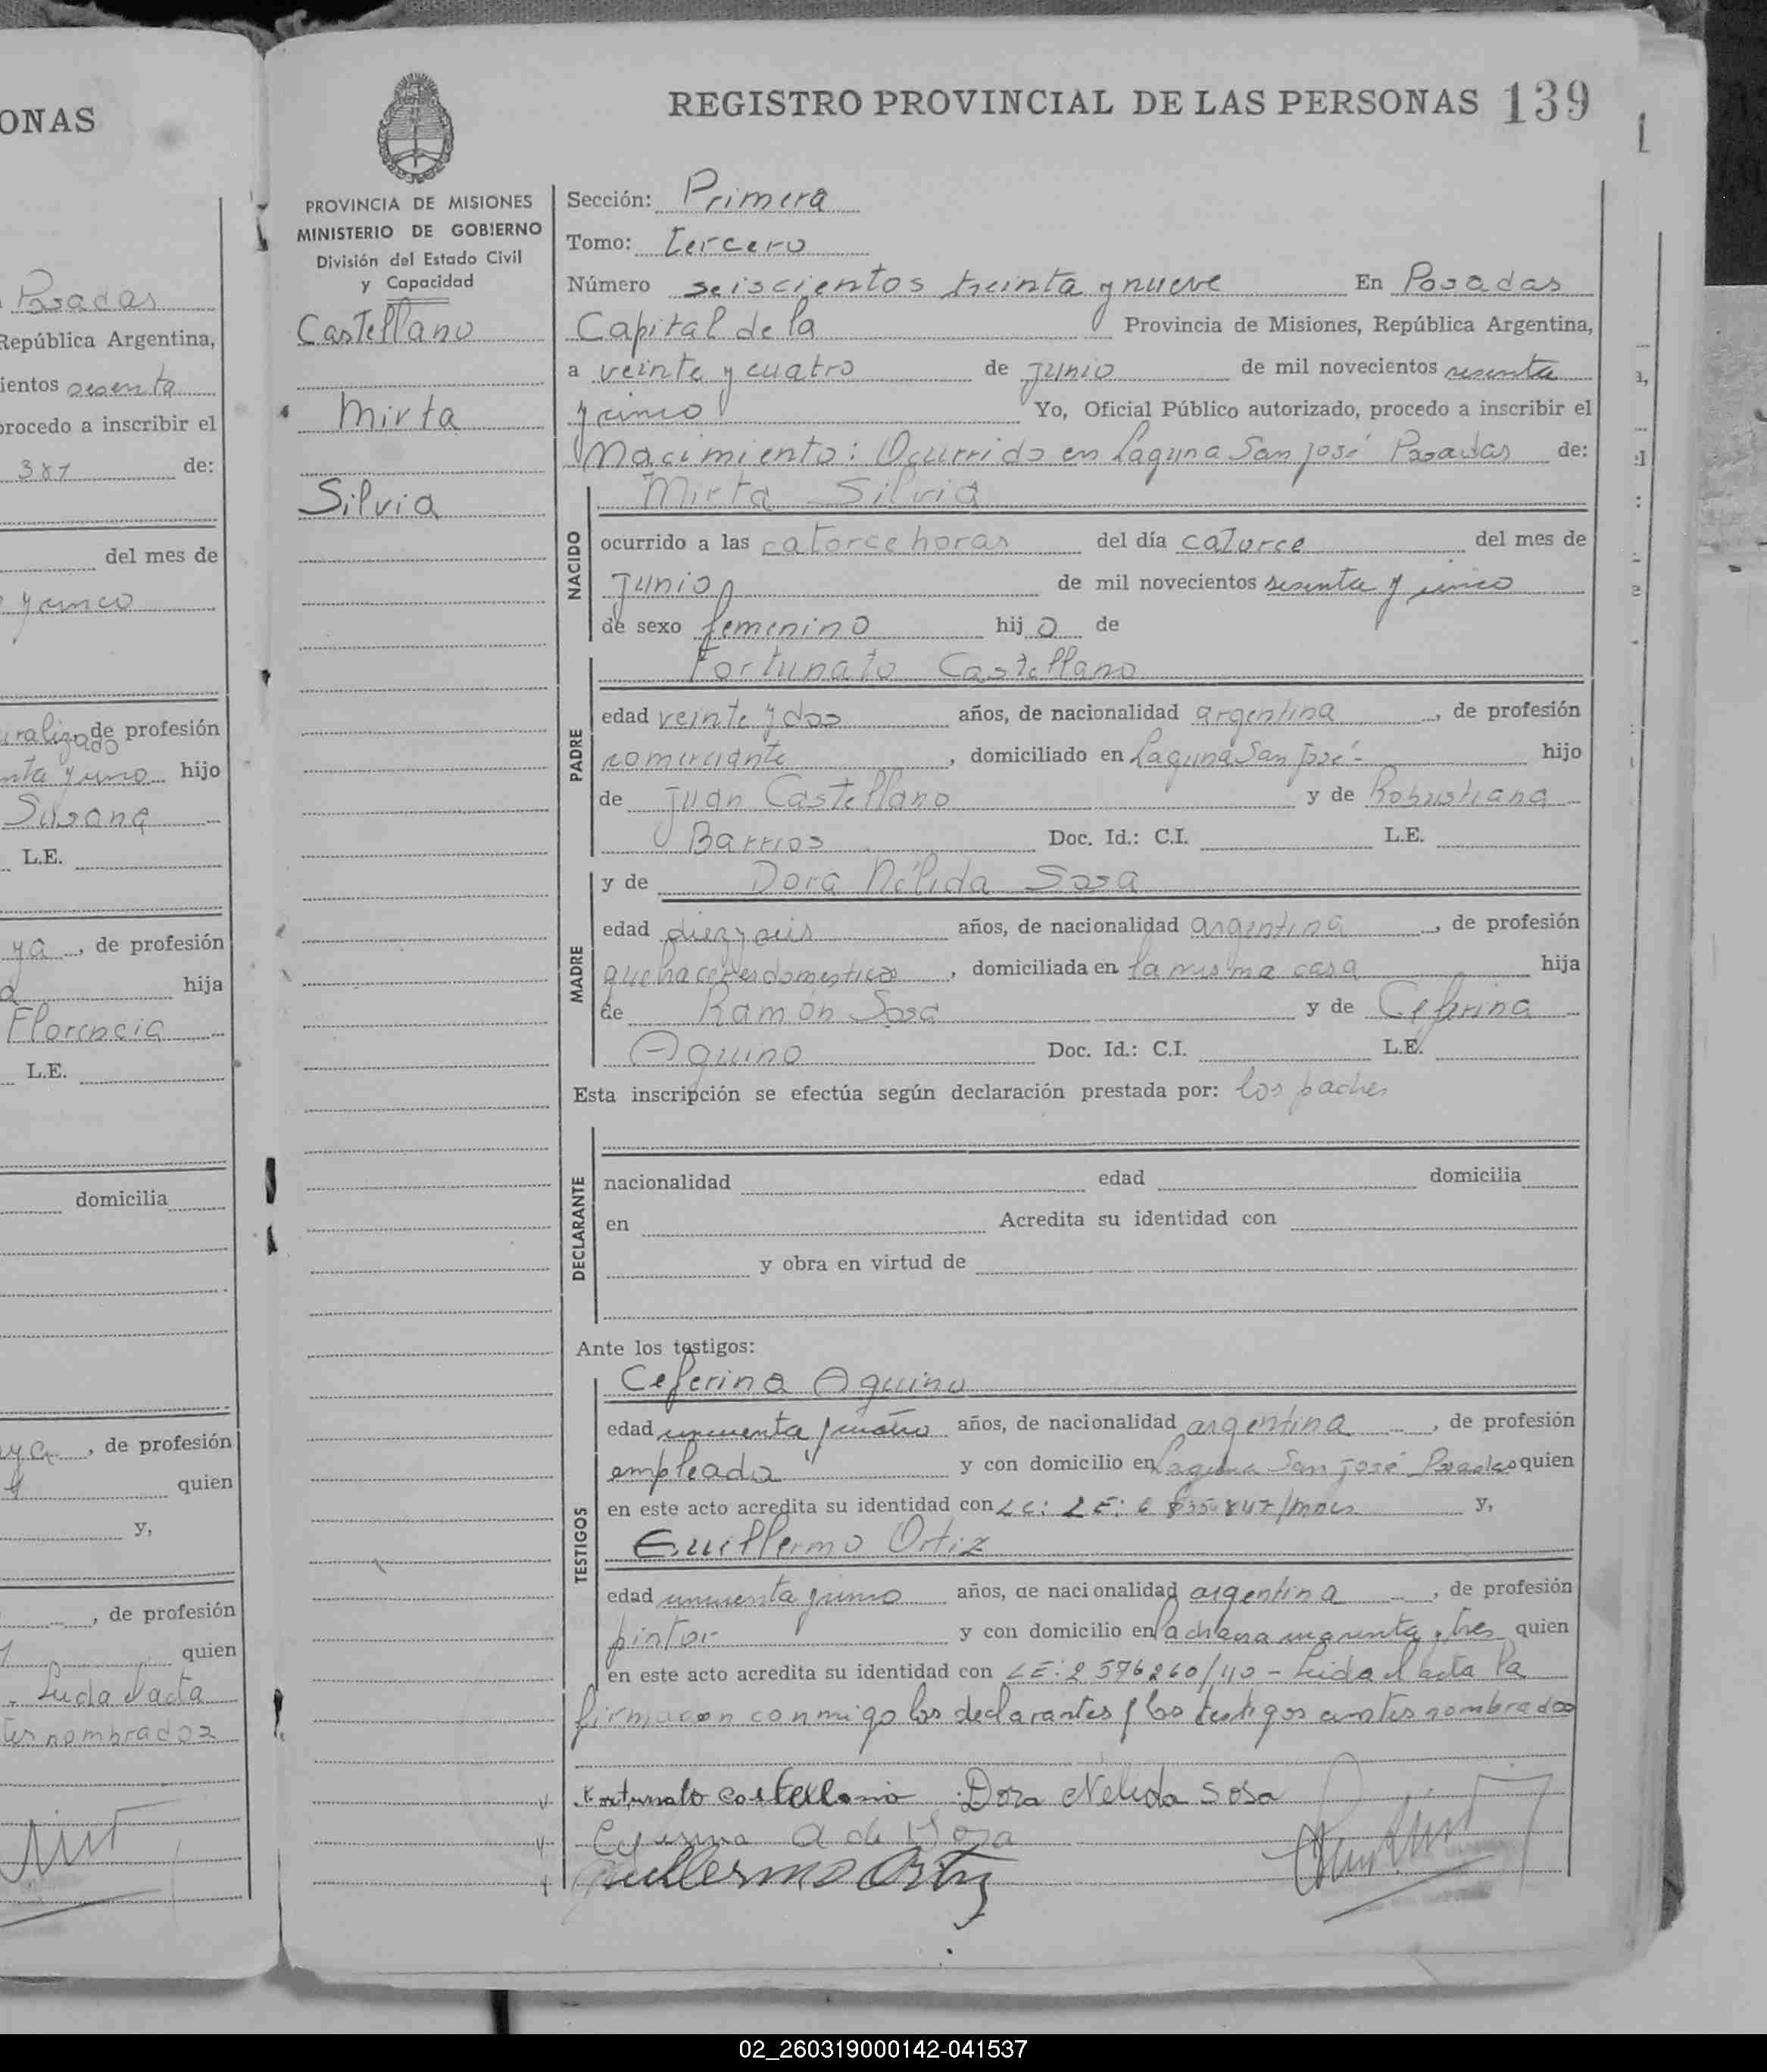 ONAS
Posadas
República Argentina,
ientos sesenta
procedo a inscribir el
387 de:
del mes de
y cinco
de profesión
hijo
Susana
L.E.
ya, de profesión
hija
Florencia
L.E.
domicilia
ya, de profesión
quien
y,
, de profesión
quien
Leida el acta
tes nombrados
REGISTRO PROVINCIAL DE LAS PERSONAS 139
PROVINCIA DE MISIONES
MINISTERIO DE GOBIERNO
División del Estado Civil
y Capacidad
Castellano
Mirta
Silvia
Sección: Primera
Tomo: tercero
Número seiscientos treinta y nueve En Posadas
Capital de la Provincia de Misiones, República Argentina,
a veinte y cuatro de junio de mil novecientos sesenta
y cinco Yo, Oficial Público autorizado, procedo a inscribir el
Nacimiento: Ocurrido en Laguna San José Posadas de:
Mirta Silvia
NACIDO
ocurrido a las catorce horas del día catorce del mes de
junio de mil novecientos sesenta y cinco
de sexo femenino hij o de
Fortunato Castellano
PADRE
edad veinte y dos años, de nacionalidad argentina, de profesión
comerciante, domiciliado en Laguna San José - hijo
de Juan Castellano y de Robustiana
Barrios Doc. Id.: C.I. L.E.
y de Dora Nélida Sosa
MADRE
edad diez y seis años, de nacionalidad argentina, de profesión
quehaceres domesticos, domiciliada en la misma casa hija
de Ramón Sosa y de Ceferina
Aquino Doc. Id.: C.I. L.E.
Esta inscripción se efectúa según declaración prestada por: los padres
DECLARANTE
nacionalidad edad domicilia
en Acredita su identidad con
y obra en virtud de
Ante los testigos:
Ceferina Aquino
TESTIGOS
edad cincuenta y cuatro años, de nacionalidad argentina, de profesión
empleada y con domicilio en Laguna San José Posadas quien
en este acto acredita su identidad con LC: LE: y,
Guillermo Ortiz
edad cincuenta y uno años, de nacionalidad argentina, de profesión
pintor y con domicilio en la chacra cuarenta y tres quien
en este acto acredita su identidad con LE: 2576260/40 - Leida el acta la
firmaron conmigo los declarantes y los testigos antes nombrados
Fortunato Castellano Dora Nelida Sosa
Ceferina A de Sosa
Guillermo Ortiz
02_260319000142-041537